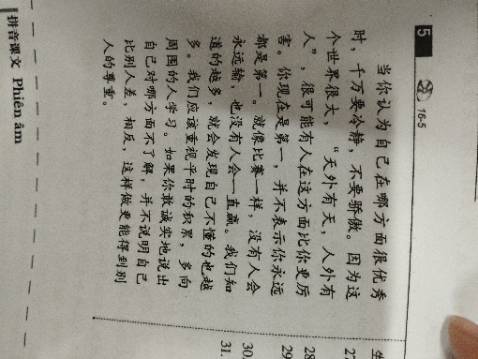 5 16-5
当你认为自己在哪方面很优秀
时，千万要冷静，不要骄傲。因为这
个世界很大，“天外有天，人外有
人”，很可能有人在这方面比你更厉
害。你现在是第一，并不表示你永远
都是第一。就像比赛一样，没有人会
永远输，也没有人会一直赢。我们知
道的越多，就会发现自己不懂的也越
多。我们应该重视平时的积累，多向
周围的人学习。如果你敢诚实地说出
自己对哪方面不了解，并不说明自己
比别人差，相反，这样做更能得到别
人的尊重。
拼音课文 Phiên âm
27
28
29
30.
31.